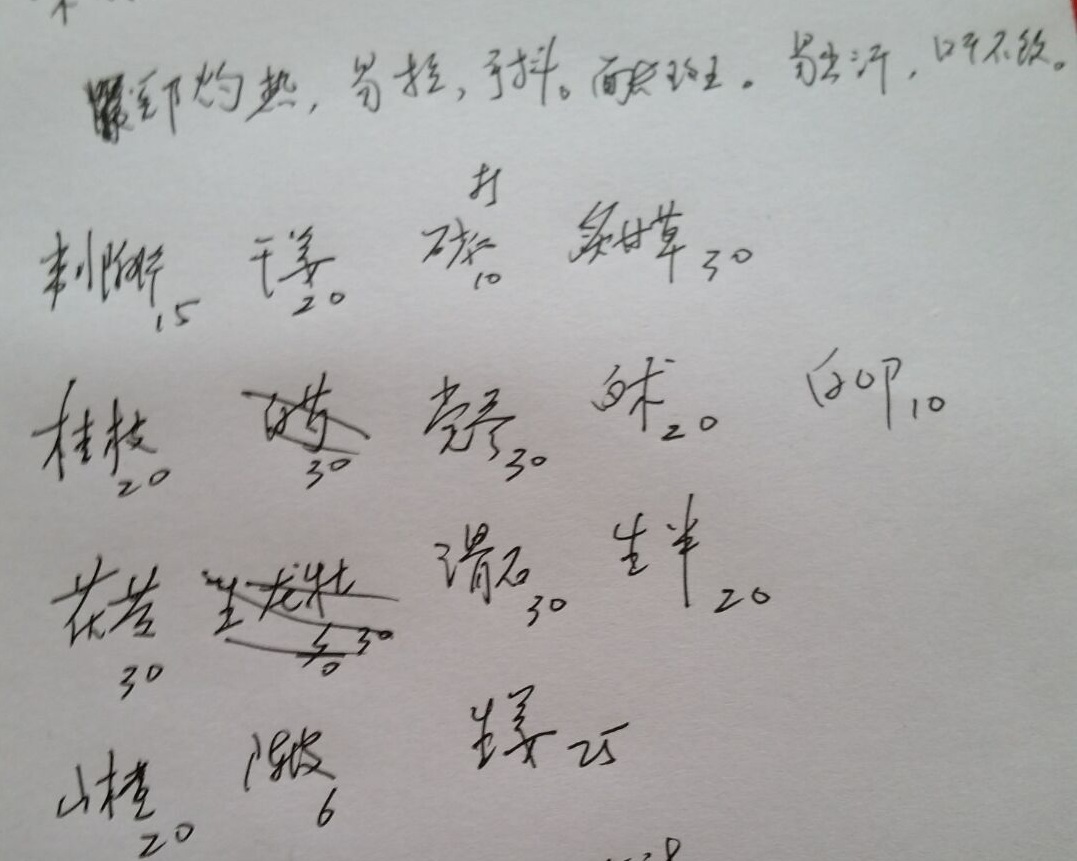 部灼热，易拉，手抖。面色斑。易出汗，口干不欲。
打
制附片15 干姜20 砂仁10 炙甘草30
桂枝20 白芍30 党参30 白术20 白叩10
茯苓30 生龙牡30 滑石30 生半20
山楂20 陈皮6 生姜25